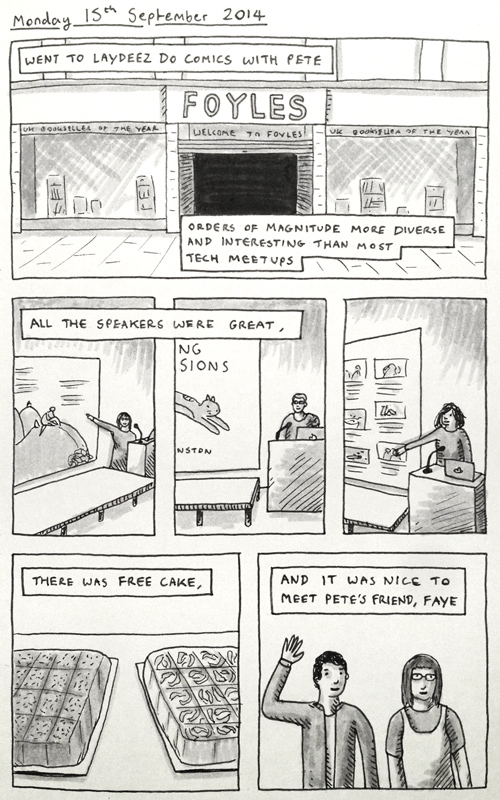 Monday 15th September 2014
WENT TO LAYDEEZ DO COMICS WITH PETE
FOYLES
UK BOOKSELLER OF THE YEAR
WELCOME TO FOYLES!
UK BOOKSELLER OF THE YEAR
ORDERS OF MAGNITUDE MORE DIVERSE
AND INTERESTING THAN MOST
TECH MEETUPS
ALL THE SPEAKERS WERE GREAT,
NG
SIONS
NSTON
THERE WAS FREE CAKE,
AND IT WAS NICE TO
MEET PETE'S FRIEND, FAYE